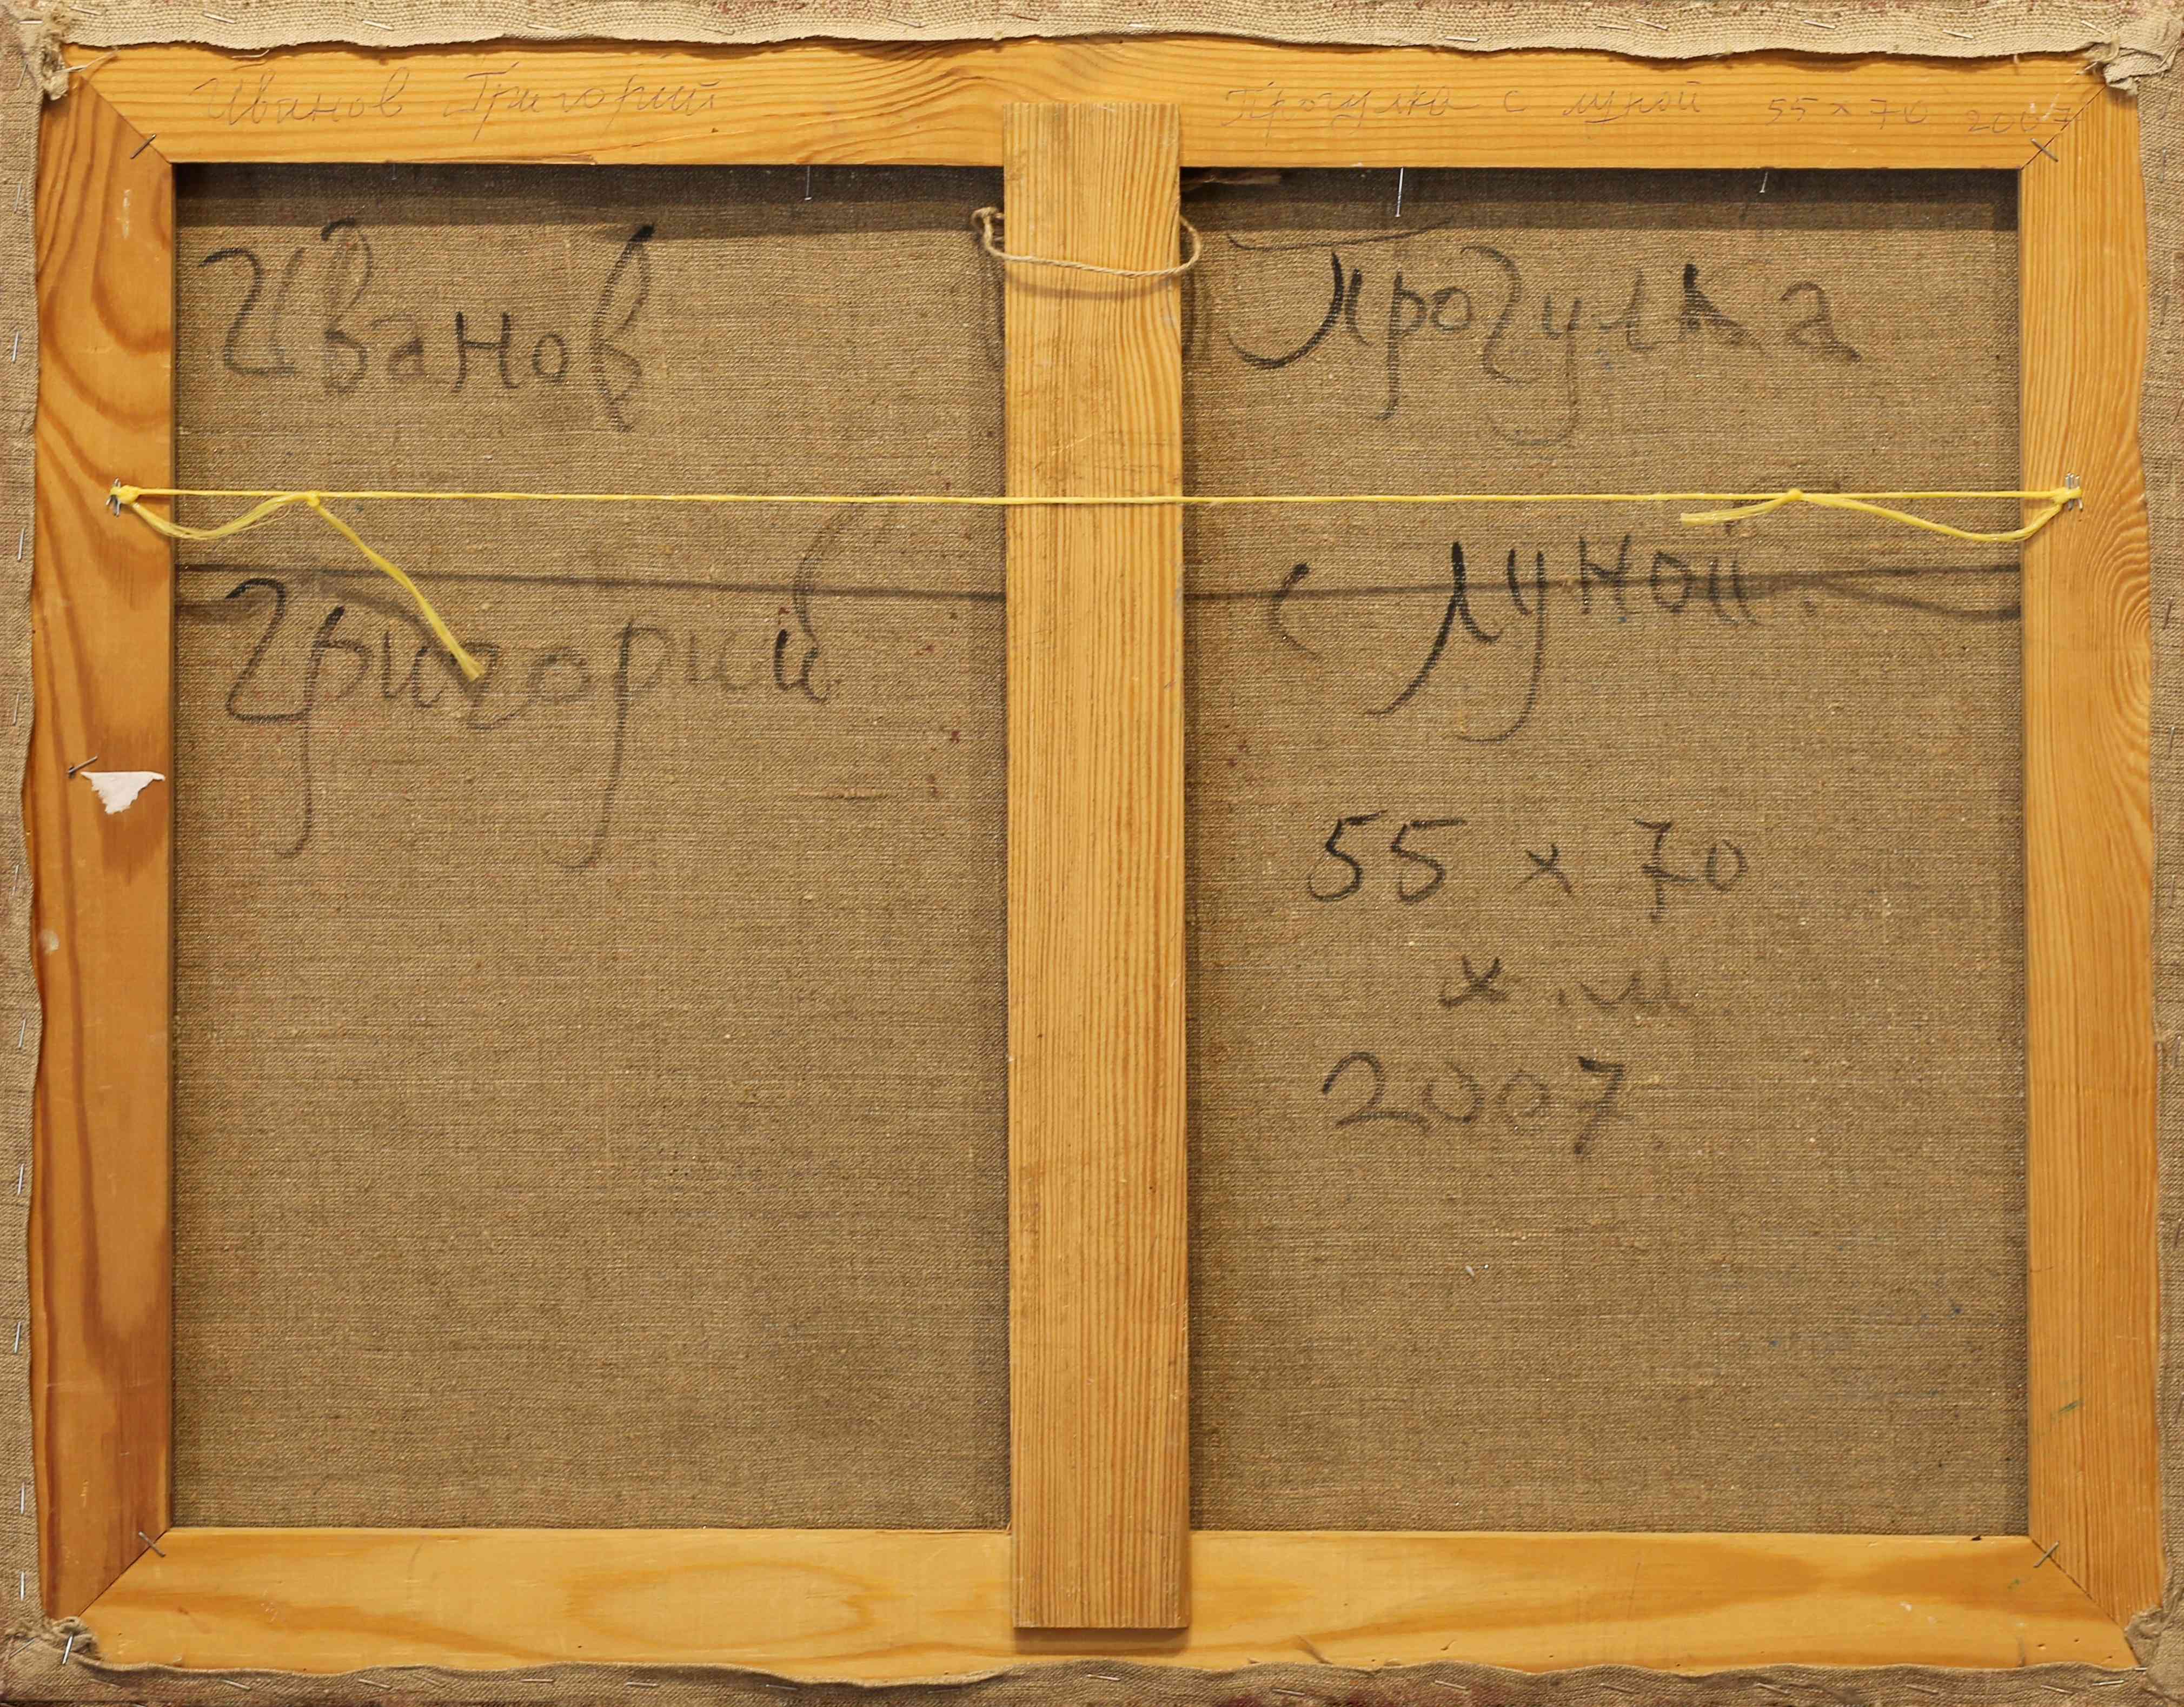 Иванов Григорий Прогулка с луной 55 х 70 2007
Иванов
Григорий
Прогулка
с Луной.
55 х 70
х.м
2007